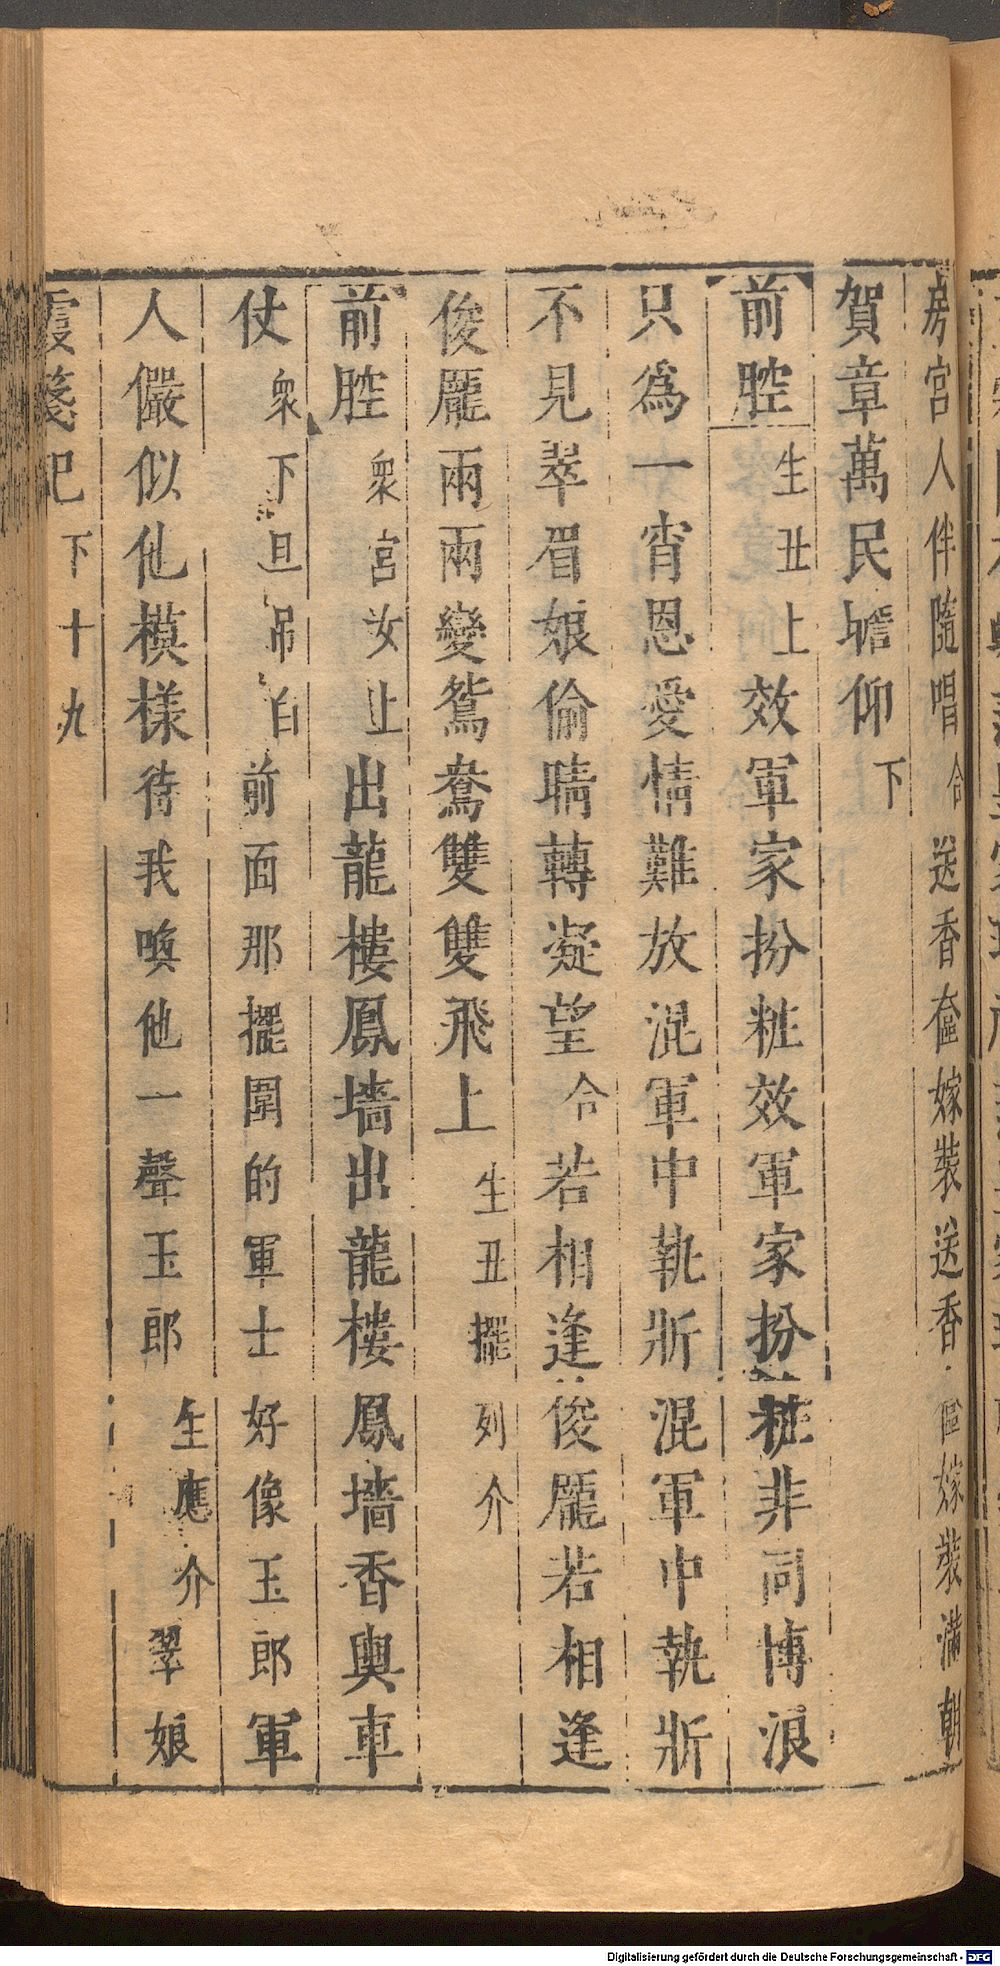 房宮人伴隨唱合送香奩嫁裝送香奩嫁裝滿朝
賀章萬民瞻仰下
前腔生丑上效軍家扮粧效軍家扮粧非同博浪
只爲一宵恩愛情難放混軍中執斨混軍中執斨
不見翠眉娘偷睛轉凝望合若相逢俊龐若相逢
俊龐兩兩變鴛鴦雙雙飛上生丑擺列介
前腔衆宮女上出龍樓鳳墻出龍樓鳳墻香輿車
仗衆下旦吊白前面那擺圍的軍士好像玉郎軍
人儼似他模樣待我喚他一聲玉郎生應介翠娘
霞箋記下十九
Digitalisierung gefördert durch die Deutsche Forschungsgemeinschaft - DFG